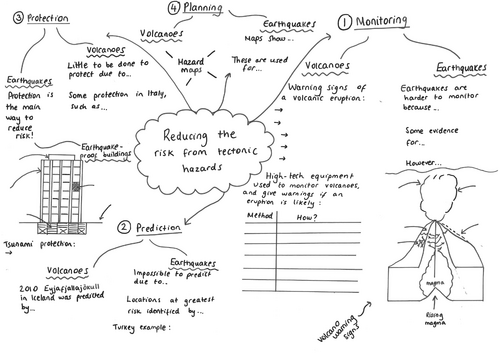 ③ Protection
Volcanoes
Little to be done to
protect due to...
Some protection in Italy,
such as...
Earthquakes
Protection is
the main
way to
reduce
risk!
Earthquake-
proof buildings
Tsunami protection:
→
④ Planning
Volcanoes
Hazard
maps
Earthquakes
Maps show...
These are used
for...
① Monitoring
Volcanoes
Warning signs of
a volcanic eruption:
→
→
→
→
→
High-tech equipment
used to monitor volcanoes,
and give warnings if an
eruption is likely:
Method
How?
Earthquakes
Earthquakes are
harder to monitor
because...
Some evidence
for...
However...
magma
Rising
magma
Volcano
warning
signs
Reducing the
risk from tectonic
hazards
② Prediction
Volcanoes
2010 Eyjafjallajökull
in Iceland was predicted
by...
Earthquakes
Impossible to predict
due to..
Locations at greatest
risk identified by...
Turkey example: